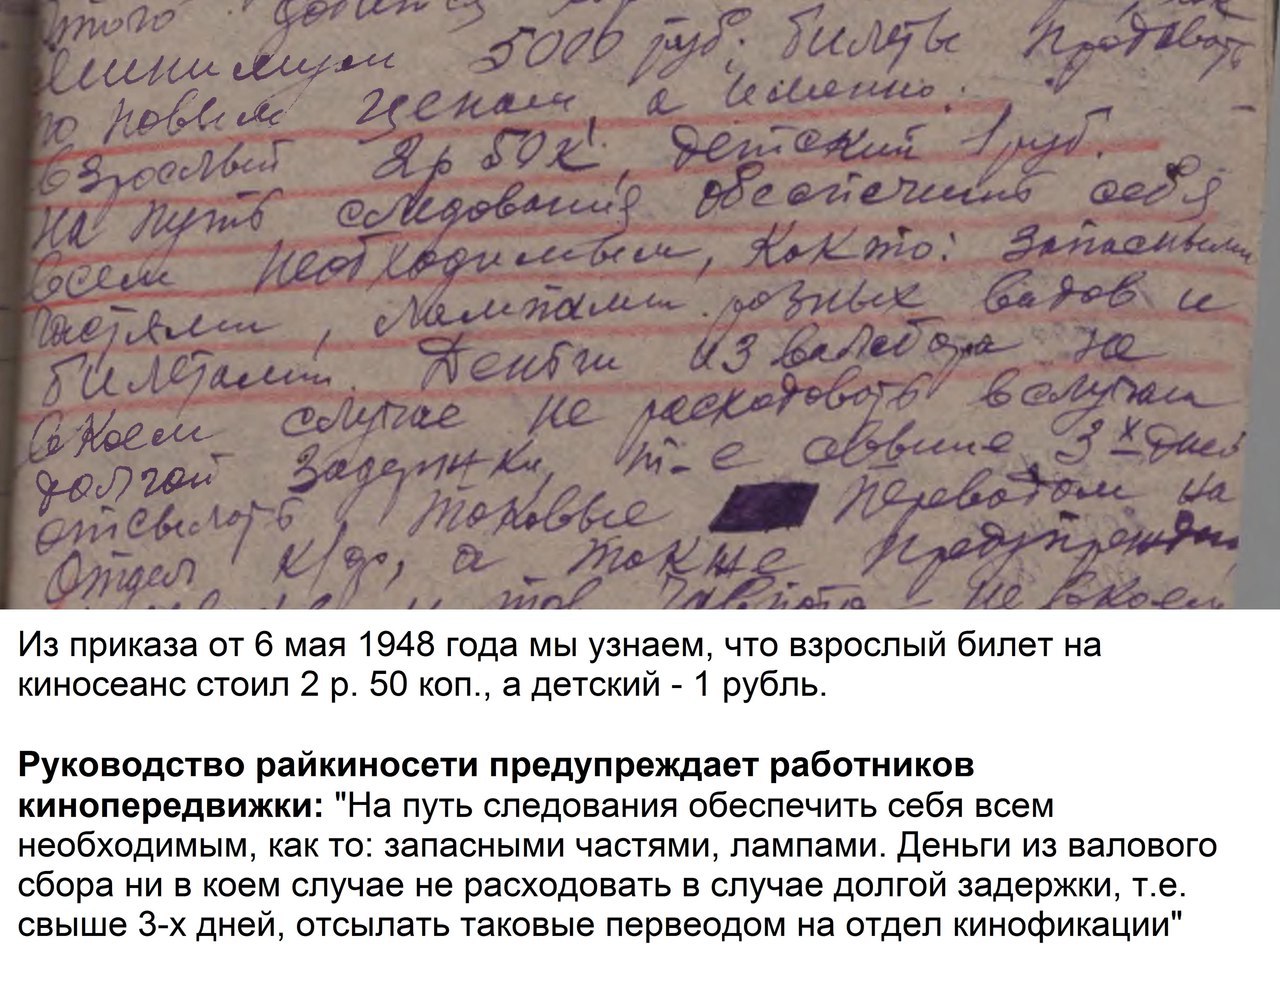 этого добиться
минимум 5000 руб. билеты продавать
по новым ценам, а именно:
взрослый 2р 50к, детский 1 руб.
на путь следования обеспечить себя
всем необходимым, как то: запасными
частями, лампами разных видов и
билетами. Деньги из валсбора не
в коем случае не расходовать в случаи
долгой задержки, т-е свыше 3х дней
отсылать таковые переводом на
Отдел к/ф, а также предупрежда
не в коем
Из приказа от 6 мая 1948 года мы узнаем, что взрослый билет на
киносеанс стоил 2 р. 50 коп., а детский - 1 рубль.
Руководство райкиносети предупреждает работников
кинопередвижки: "На путь следования обеспечить себя всем
необходимым, как то: запасными частями, лампами. Деньги из валового
сбора ни в коем случае не расходовать в случае долгой задержки, т.е.
свыше 3-х дней, отсылать таковые первеодом на отдел кинофикации"